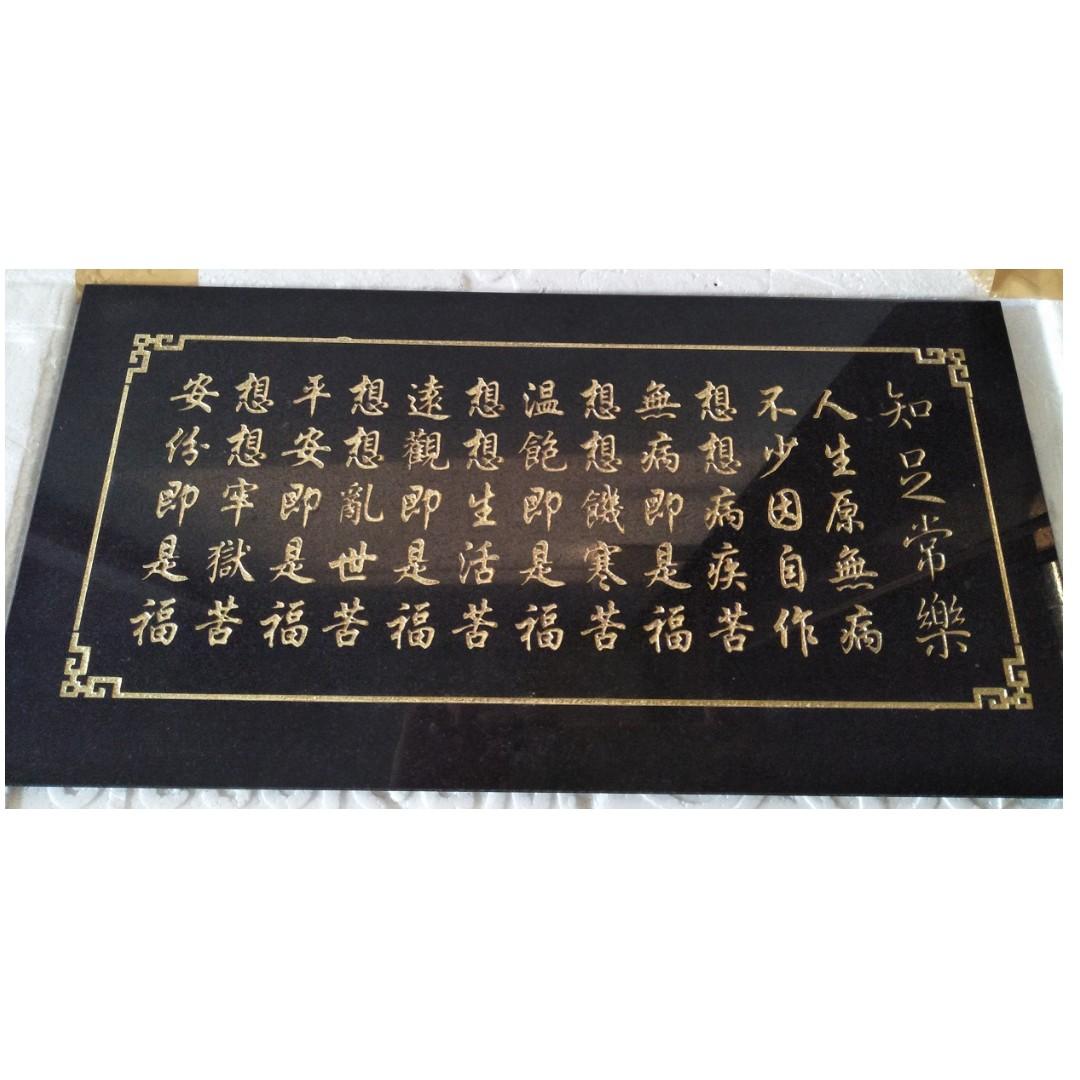 知足常樂
人生原無病
不少因自作
想想病疾苦
無病即是福
想想饑寒苦
温飽即是福
想想生活苦
遠觀即是福
想想亂世苦
平安即是福
想想牢獄苦
安份即是福